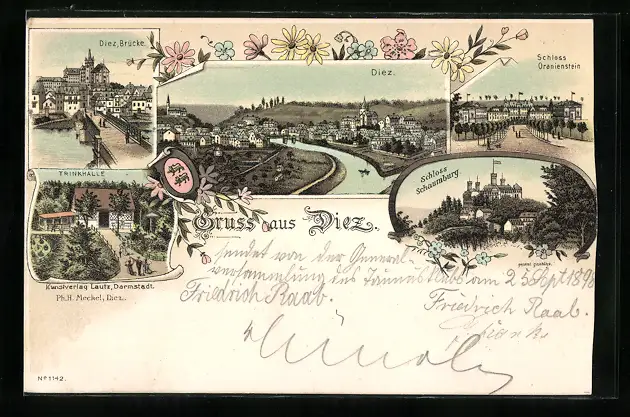 Diez, Brücke.
Diez.
Schloss
Oranienstein
TRINKHALLE
Schloss
Schaumburg
Gruss aus Diez.
sendet von der General-
versammlung des Taunusklubs am 25 Sept 1898
Friedrich Raab.
Friedrich Raab.
Kunstverlag Lautz, Darmstadt.
Ph. H. Meckel, Diez.
No 1142.